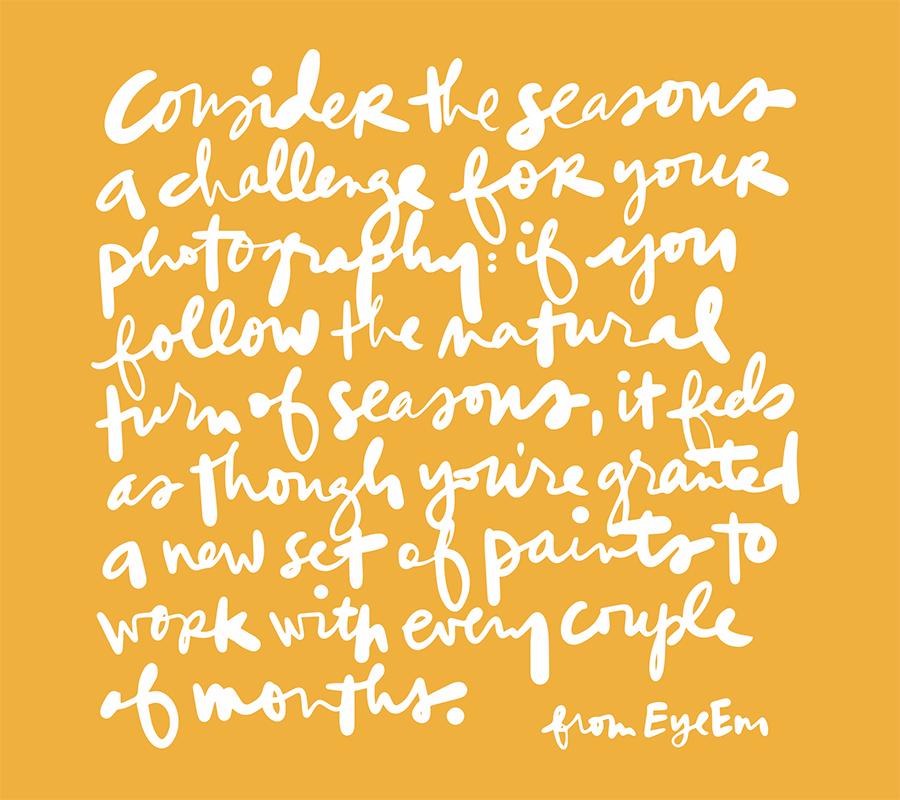 Consider the seasons
a challenge for your
photography: if you
follow the natural
turn of seasons, it feels
as though you're granted
a new set of paints to
work with every couple
of months.
from EyeEm